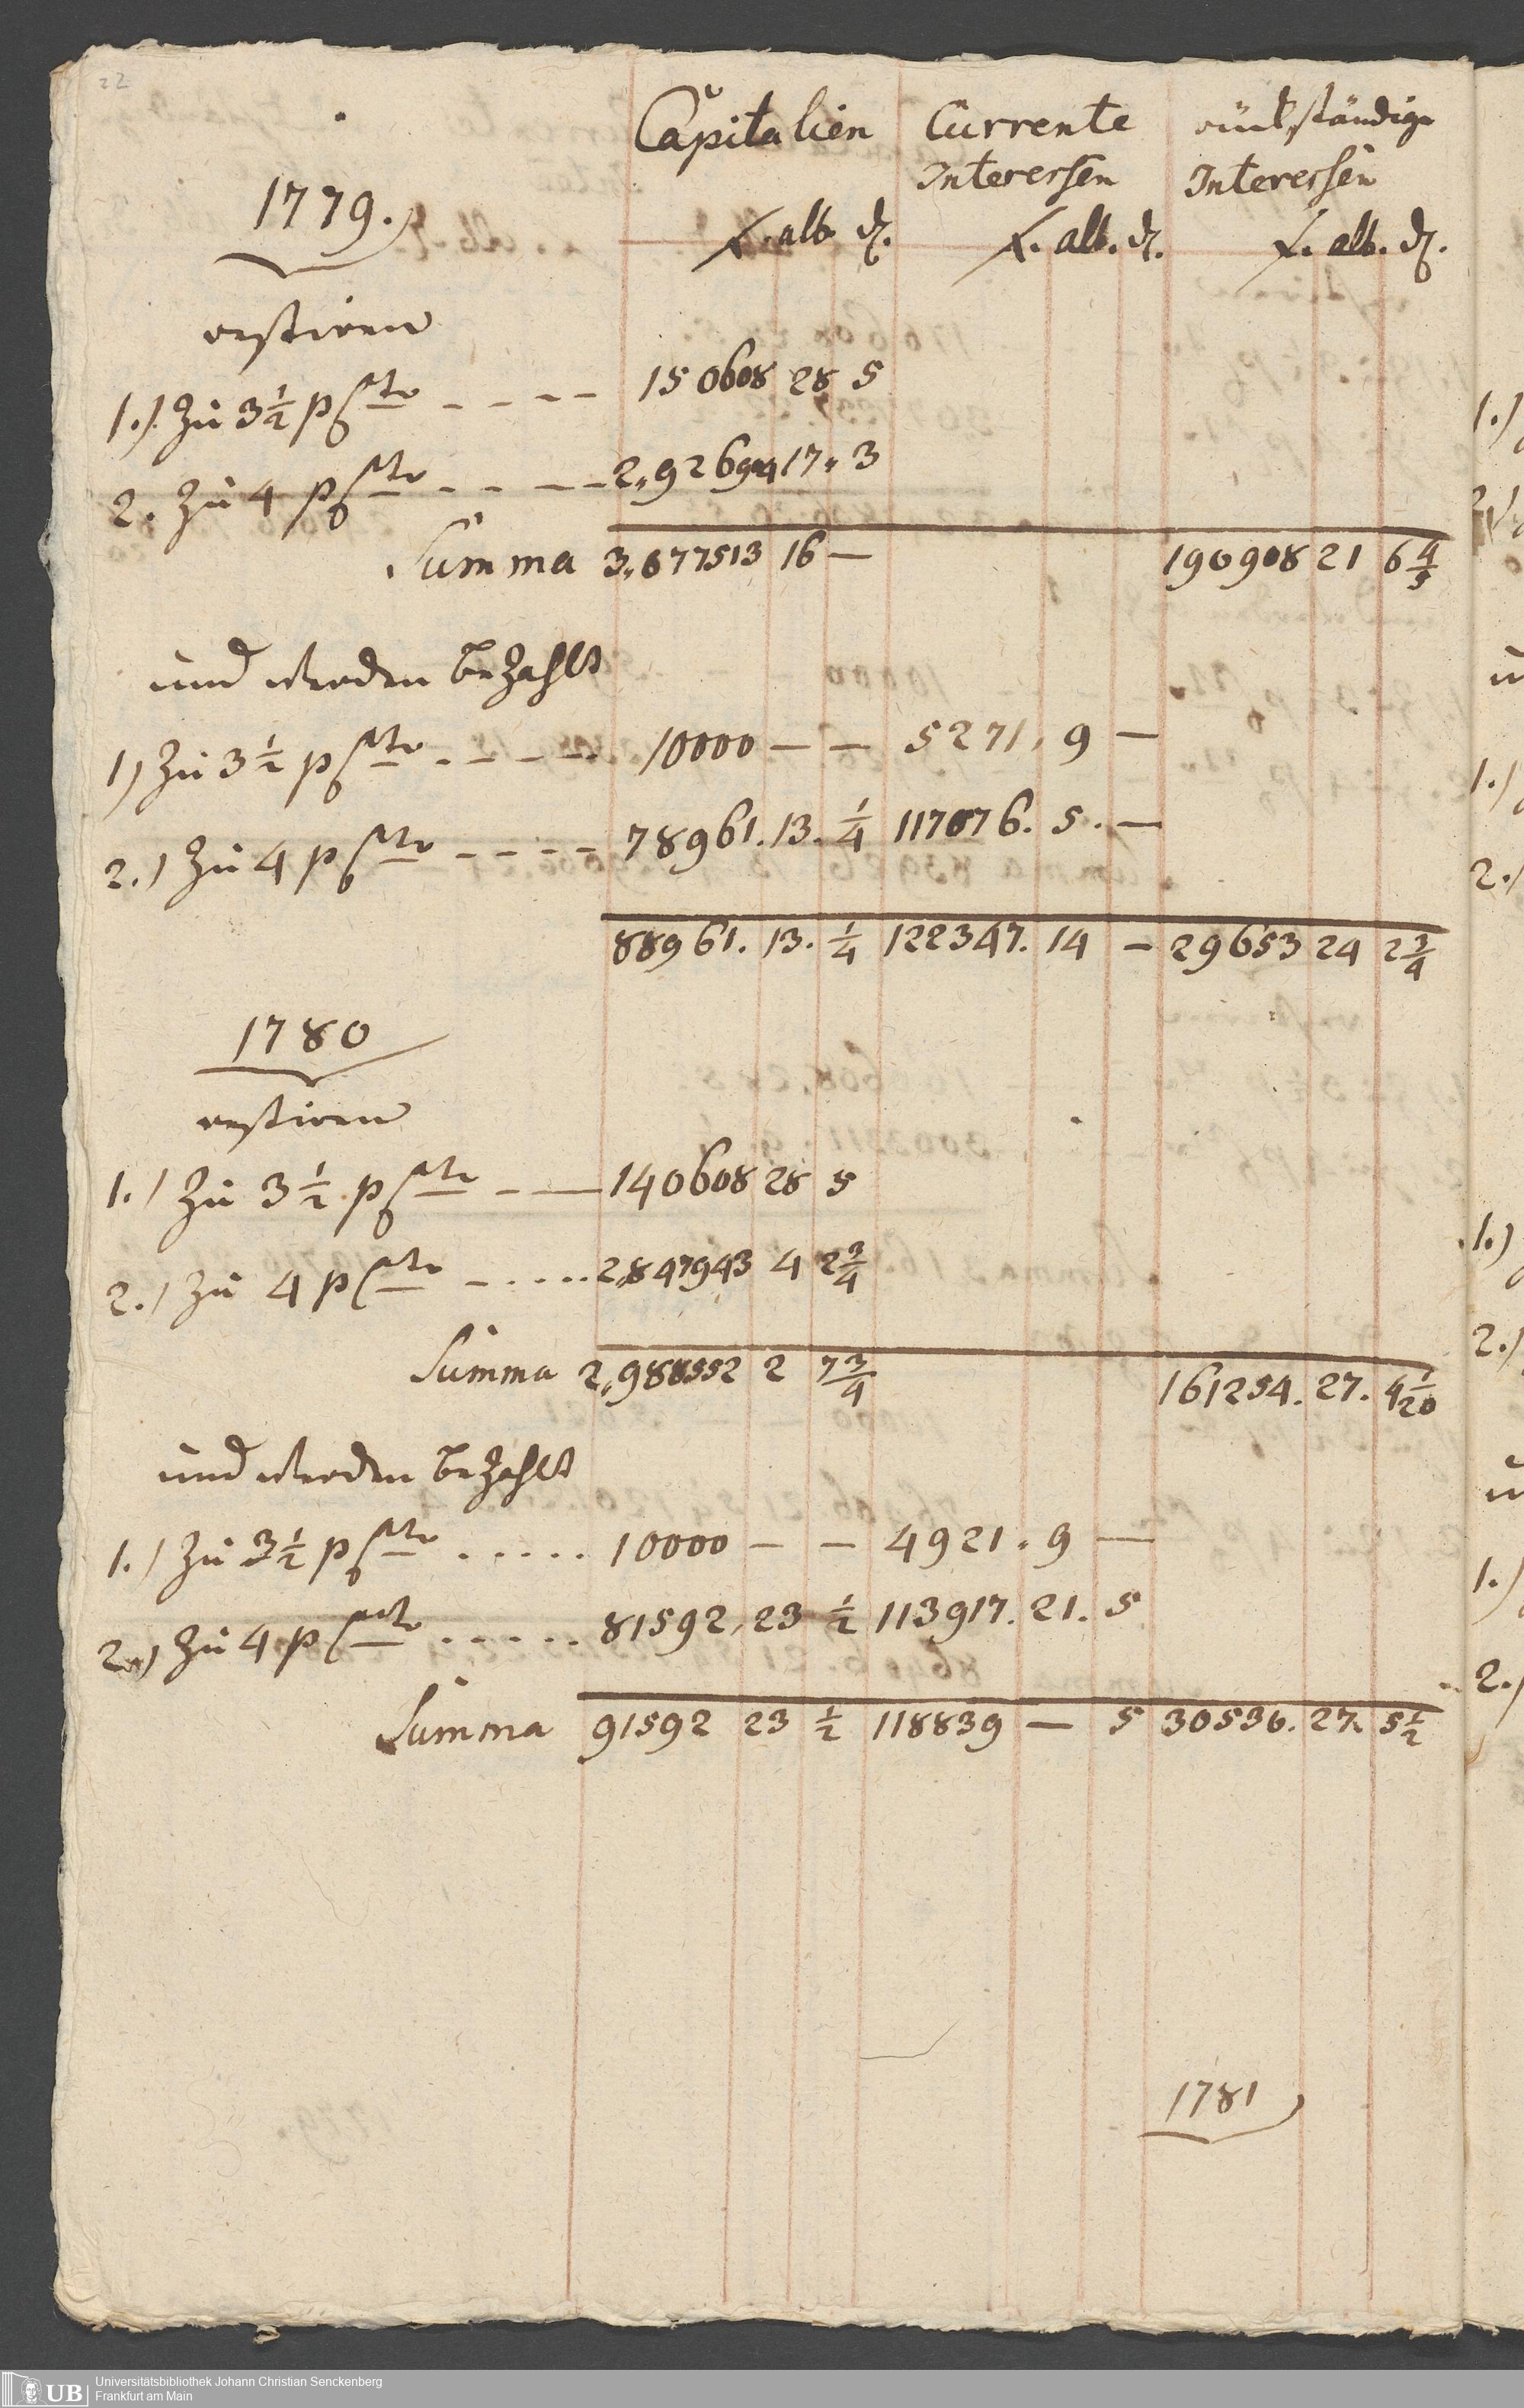 22
Capitalien Currente rückständige
Interessen Interessen
1779.
f. alb ₰. f. alb. ₰. f. alb. ₰.
restiren
1.) Zu 3 1/2 p Cto - - - - 150608 28 5
2. Zu 4 p Cto - - - - 2,,926904 17,, 3
Summa 3,,077513 16 — 190908 21 6 4/5
und werden bezahlt
1) Zu 3 1/2 p Cto - - - - - 10000 — — 5271. 9 —
2.) Zu 4 p Cto - - - - 78961. 13. 1/4 117076. 5. —
88961. 13. 1/4 122347. 14 — 29653 24 2 3/4
1780
restiren
1.) Zu 3 1/2 p Cto - — 140608 28 5
2.) Zu 4 p Cto - . . . . 2,,847943 4 2 3/4
Summa 2,,988552 2 7 3/4 161254. 27. 4 1/20
und werden bezahlt
1.) Zu 3 1/2 p Cto . . . . . 10000 — — 4921. 9 —
2.) Zu 4 p Cto . . . . . 81592. 23 1/2 113917. 21. 5
Summa 91592 23 1/2 118839 — 5 30536. 27. 5 1/2
1781
1.)
2.)
1.)
2.)
1.)
2.)
1.)
2.)
UB Universitätsbibliothek Johann Christian Senckenberg
Frankfurt am Main